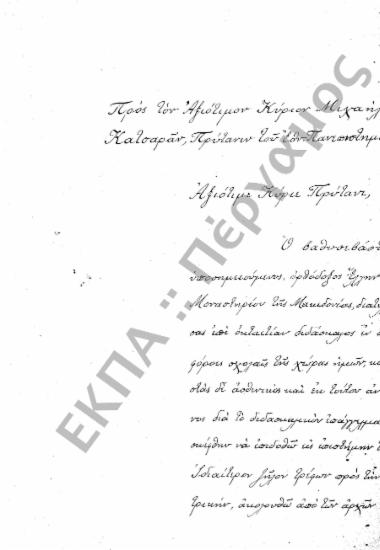 Πρὸς τὸν Ἀξιότιμον Κύριον Μιχαὴλ
Κατσαρᾶν, Πρύτανιν τοῦ Ἐθν. Πανεπιστημ
Ἀξιότιμε Κύριε Πρύτανι,
Ὁ βαθυσεβάστ
ὑποσημειούμενος, ὀρθόδοξος Ἕλλην
Μοναστηρίου τῆς Μακεδονίας, διατελ
σας ἐπὶ ὀκταετίαν διδάσκαλος ἐν δ
φόροις σχολαῖς τῆς χώρας ἡμῶν, κα
στὰς δὲ ἀσθενικὸς καὶ ἐκ τούτου ἀν
νος διὰ τὸ διδασκαλικὸν ἐπάγγελμα
σκέφθην νὰ ἐπιδοθῶ εἰς ἐπιστήμην
Ἰδιαίτερον ζῆλον τρέφων πρὸς τὴν
τρικήν, ἀκολουθῶ ἀπὸ τῶν ἀρχῶν
ΕΚΠΑ :: Πέργαμος